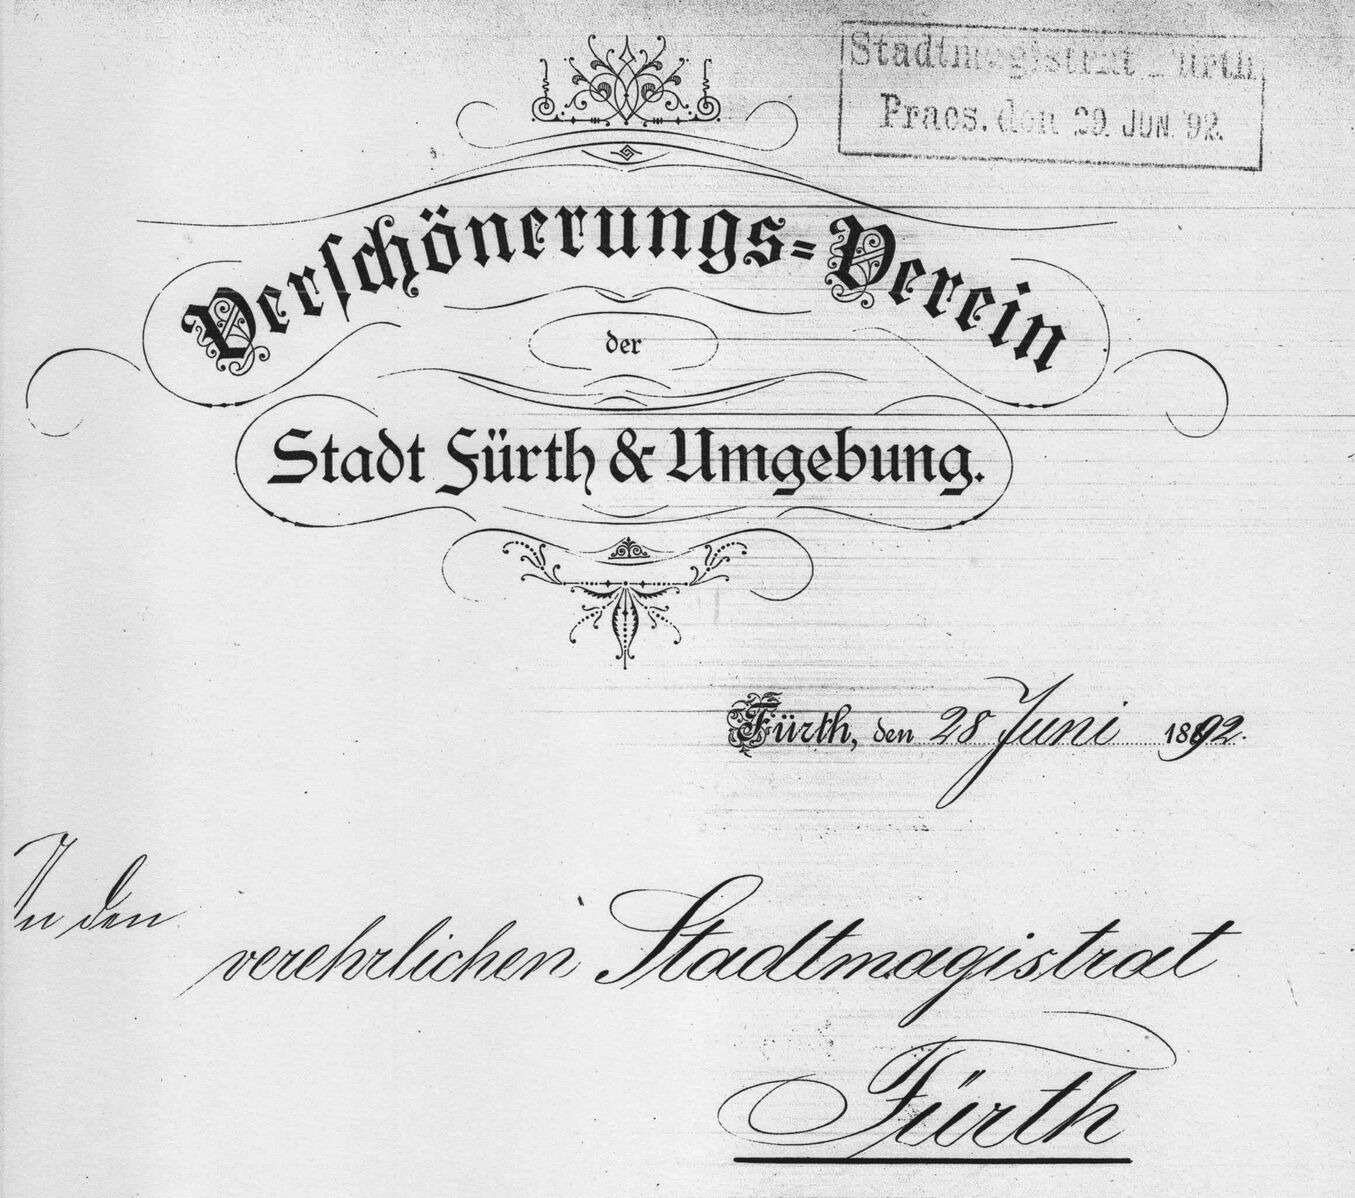 Stadtmagistrat Fürth
Praes. den 29. JUN. 92.
Verschönerungs=Verein
der
Stadt Fürth & Umgebung.
Fürth, den 28 Juni 1892.
An den
verehrlichen Stadtmagistrat
Fürth